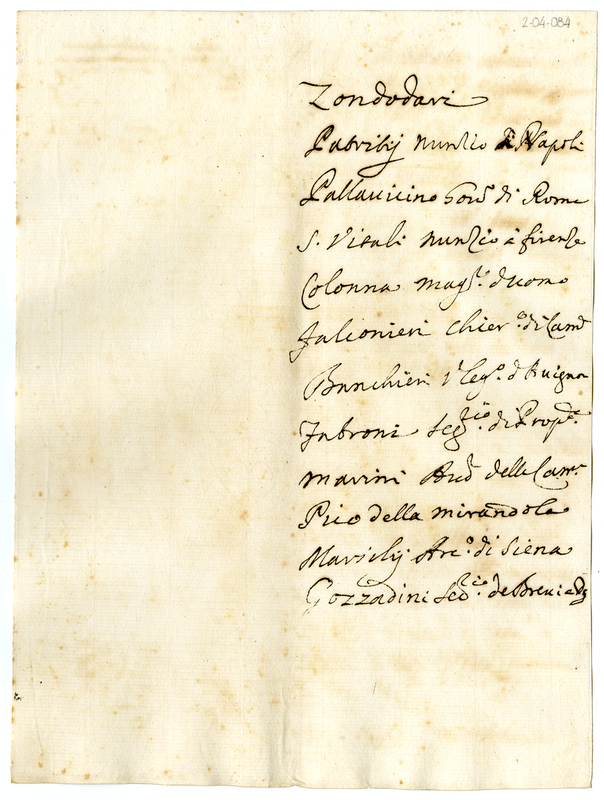 2-04-084
Zondodari
Patritij nuntio di Napoli
Pallavicino Gov.r di Roma
S. Vitali nuntio à firenze
Colonna mag.o duomo
Falconieri chier.o di Cam.
Banchieri V. leg.o d'Avignon
Fabroni seg.rio di Prop.
Marini Aud. della Cam.
Pico della mirandola
Marsilij Arc.o di Siena
Gozzadini sec.rio de Brevi